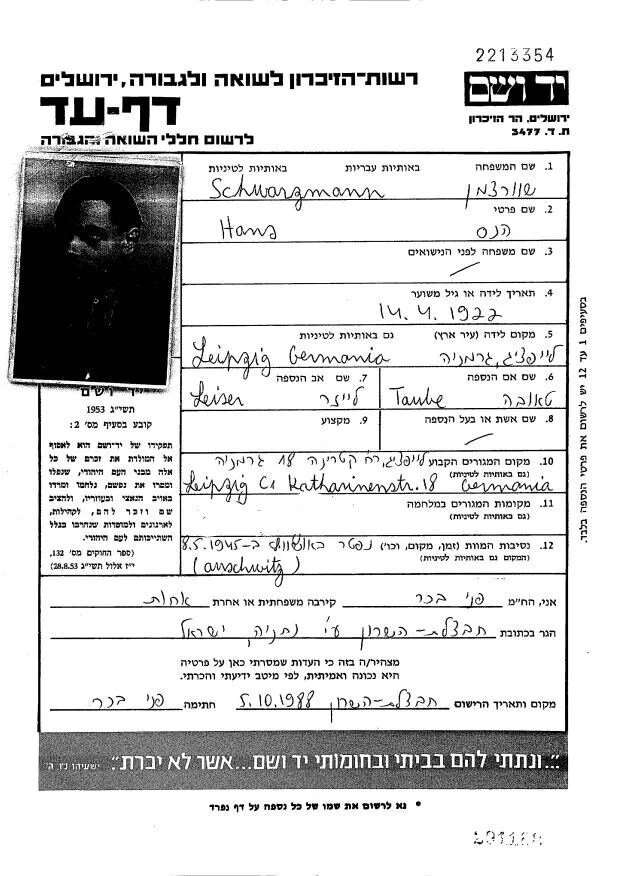 2213354
רשות-הזיכרון לשואה ולגבורה, ירושלים
יד ושם
דף-עד
ירושלים, הר הזיכרון
ת. ד. 3477
לרשום חללי השואה והגבורה
1. שם המשפחה באותיות עבריות באותיות לטיניות
שוורצמן Schwarzmann
2. שם פרטי
הנס Hans
3. שם משפחה לפני הנישואים
4. תאריך לידה או גיל משוער
14.4.1922
5. מקום לידה (עיר ארץ) גם באותיות לטיניות
לייפציג, גרמניה Leipzig Germania
6. שם אם הנספה 7. שם אב הנספה
טאובה Taube לייזר Leiser
8. שם אשת או בעל הנספה 9. מקצוע
10. מקום המגורים הקבוע לייפציג, רח' קטרינה 18 גרמניה
(גם באותיות לטיניות)
Leipzig C1 Katharinenstr. 18 Germania
11. מקומות המגורים במלחמה
(גם באותיות לטיניות)
12. נסיבות המוות (זמן, מקום, וכו') נפטר באושוויץ ב-8.5.1945
(המקום גם באותיות לטיניות) (auschwitz)
יד ושם
תשי"ג 1953
קובע בסעיף מס' 2:
תפקידו של יד-ושם הוא לאסוף
אל המולדת את זכרם של כל
אלה מבני העם היהודי, שנפלו
ומסרו את נפשם, נלחמו ומרדו
באויב הנאצי ובעוזריו, ולהציב
שם וזכר להם, לקהילות,
לארגונים ולמוסדות שנחרבו בגלל
השתייכותם לעם היהודי.
(ספר החוקים מס' 132,
י"ז אלול תשי"ג 28.8.53)
בסעיפים 1 עד 12 יש לרשום את פרטי הנספה בלבד.
אני, הח"מ פני בכר קירבה משפחתית או אחרת אחות
הגר בכתובת חבצלת-השרון ע"י נתניה ישראל
מצהיר/ה בזה כי העדות שמסרתי כאן על פרטיה
היא נכונה ואמיתית, לפי מיטב ידיעתי והכרתי.
מקום ותאריך הרישום חבצלת-השרון 5.10.1988 חתימה פני בכר
"...ונתתי להם בביתי ובחומותי יד ושם...אשר לא יכרת". ישעיהו נ"ו, ה'
* נא לרשום את שמו של כל נספה על דף נפרד